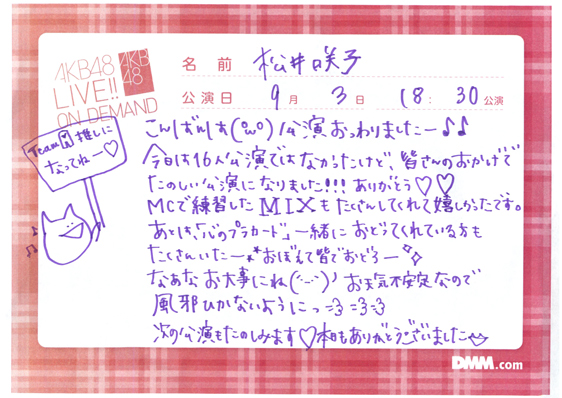 AKB48
LIVE!!
ON DEMAND
AKB
48
名前 松井咲子
公演日 9月 3日 18:30公演
こんばんはぁ(°ω°)公演おつわりましたー♪♪
Team A 推しに
なってねー♡
今日は16人公演ではなかったけど、皆さんのおかげで
たのしい公演になりました!!!ありがとう♡♡
MCで練習したMIXもたくさんしてくれて嬉しかったです。
あとは、「心のプラカード」一緒におどってくれている方も
たくさんいたー おぼえて皆でおどろー
お大事にね お天気不安定なので
風邪ひかないようにっ=3 =3 =3
次の公演もたのしみます♡本日もありがとうございました
DMM.com